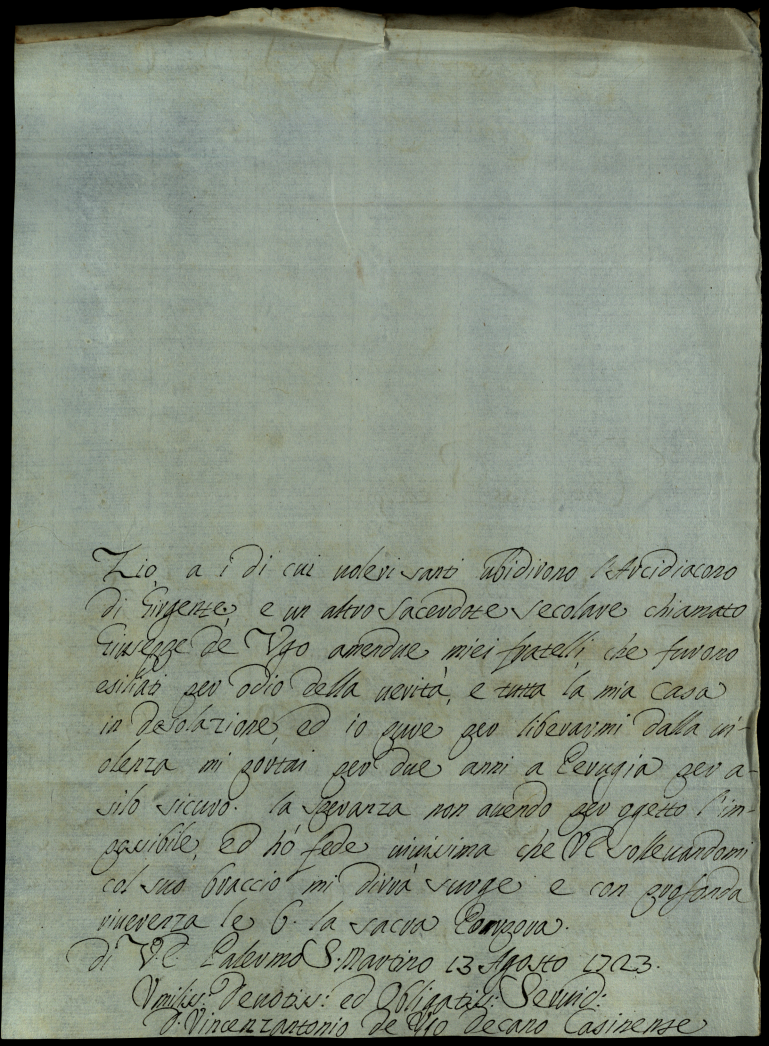 Zio, a i di cui voleri santi ubidirono l'Arcidiacono
di Girgente, e un altro Sacerdote secolare chiamato
Giuseppe de Ugo amendue miei fratelli, che furono
esiliati per odio della verità, e tutta la mia casa
in desolazione, ed io pure per liberarmi dalla vi-
olenza mi portai per due anni a Perugia per a-
silo sicuro. la speranza non avendo per ogetto l'im-
possibile, ed hò fede vivissima che VE sollevandomi
col suo braccio mi dirrà surge e con profonda
riverenza le b. la sacra Porpora.
di V.E. Palermo S. Martino 13 Agosto 1723.
Umiliss: Devotiss: ed Obligatiss: Servid:
D. Vincenzantonio de Ugo Decano Casinense